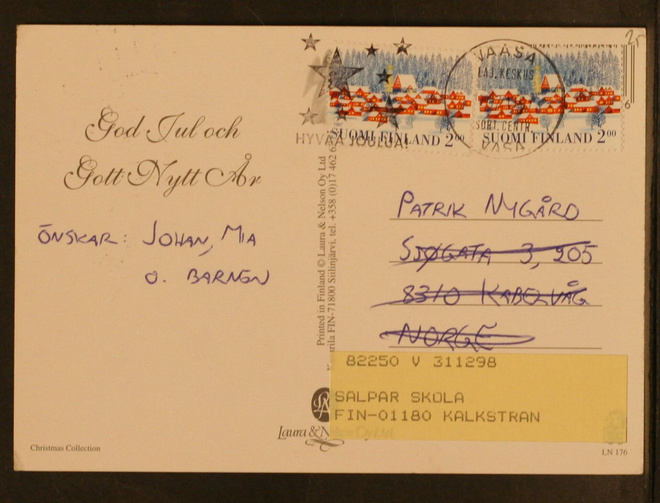 God Jul och
Gott Nytt År
ÖNSKAR: JOHAN, MIA
O. BARNEN
Christmas Collection
Printed in Finland © Laura & Nelson Oy Ltd
FIN-71800 Siilinjärvi, tel. +358 (0)17 462
HYVÄÄ JOULUA!
SUOMI FINLAND 2.00
SUOMI FINLAND 2.00
VAASA
LAJ. KESKUS
SORT. CENTR.
VASA
PATRIK NYGÅRD
SJØGATA 3, 205
8310 KABELVÅG
NORGE
82250 V 311298
SALPAR SKOLA
FIN-01180 KALKSTRAN
Laura &
LN 176